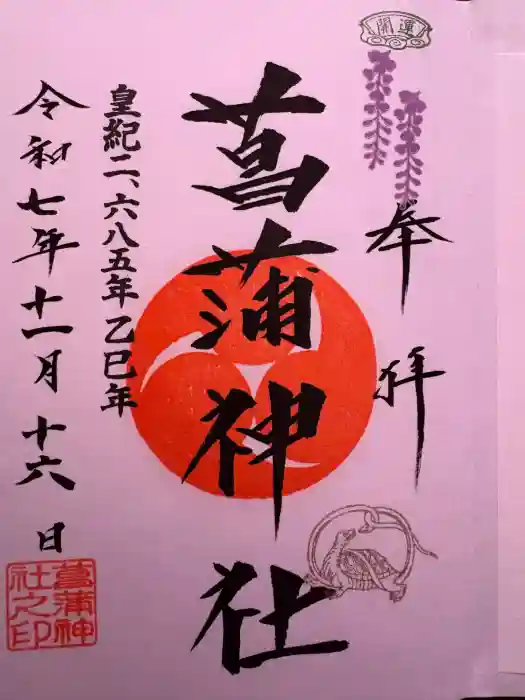 開運
奉拝
菖蒲神社
皇紀二、六八五年乙巳年
令和七年十一月十六日
菖蒲神
社之印